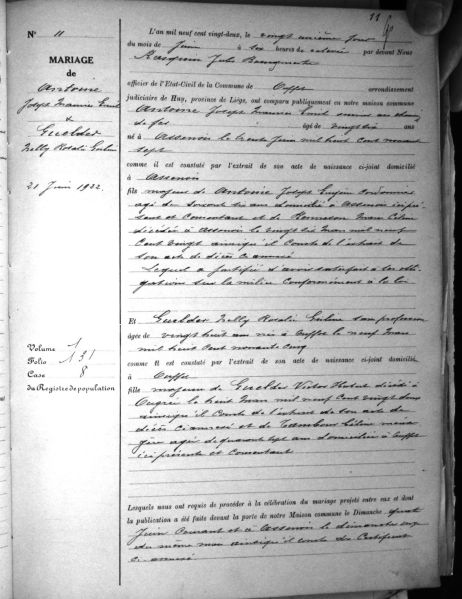 11
N° 11
MARIAGE
de
Antoine
Joseph Maurice Emile
&
Guelder
Nelly Rosalie Guiline
21 Juin 1922
Volume
Folio 131
Case 8
du Registre de population
L'an mil neuf cent vingt-deux, le vingt unième jour
du mois de Juin à six heures de relevée par devant Nous
Jules
officier de l'Etat-Civil de la Commune de arrondissement
judiciaire de Huy, province de Liége, ont comparu publiquement en notre maison commune
Antoine Joseph Maurice Emile
de fer âgé de vingt ans
né à Assenois le trente Juin mil huit cent nonante
sept
comme il est constaté par l'extrait de son acte de naissance ci-joint domicilié
à Assenois
fils majeur de Antoine Joseph Eugène cordonnier
âgé de soixante ans domicilié à Assenois ici pré
sent et consentant et de Céline
décédée à Assenois le vingt Mai mil neuf
cent vingt ainsi qu'il conste de l'extrait de
son acte de décès ci annexé
Lequel a justifié d'avoir satisfait à ses obli
gations sur la milice conformément à la loi
Et Guelder Nelly Rosalie Guiline sans profession
âgée de vingt huit ans née à le neuf
mil huit cent nonante cinq
comme il est constaté par l'extrait de son acte de naissance ci-joint domicilié,
à
fille majeure de Guelder Victor Hubert décédé à
Ougrée le huit Mars mil neuf cent vingt deux
ainsi qu'il conste de l'extrait de son acte de
décès ci annexé et de Tambour Céline ména
gère âgée de quarante sept ans domiciliée à
ici présente et consentante
Lesquels nous ont requis de procéder à la célébration du mariage projeté entre eux et dont
la publication a été faite devant la porte notre Maison commune le Dimanche quatre
Juin courant et à Assenois le dimanche onze
du même mois ainsi qu'il conste du certificat
ci annexé